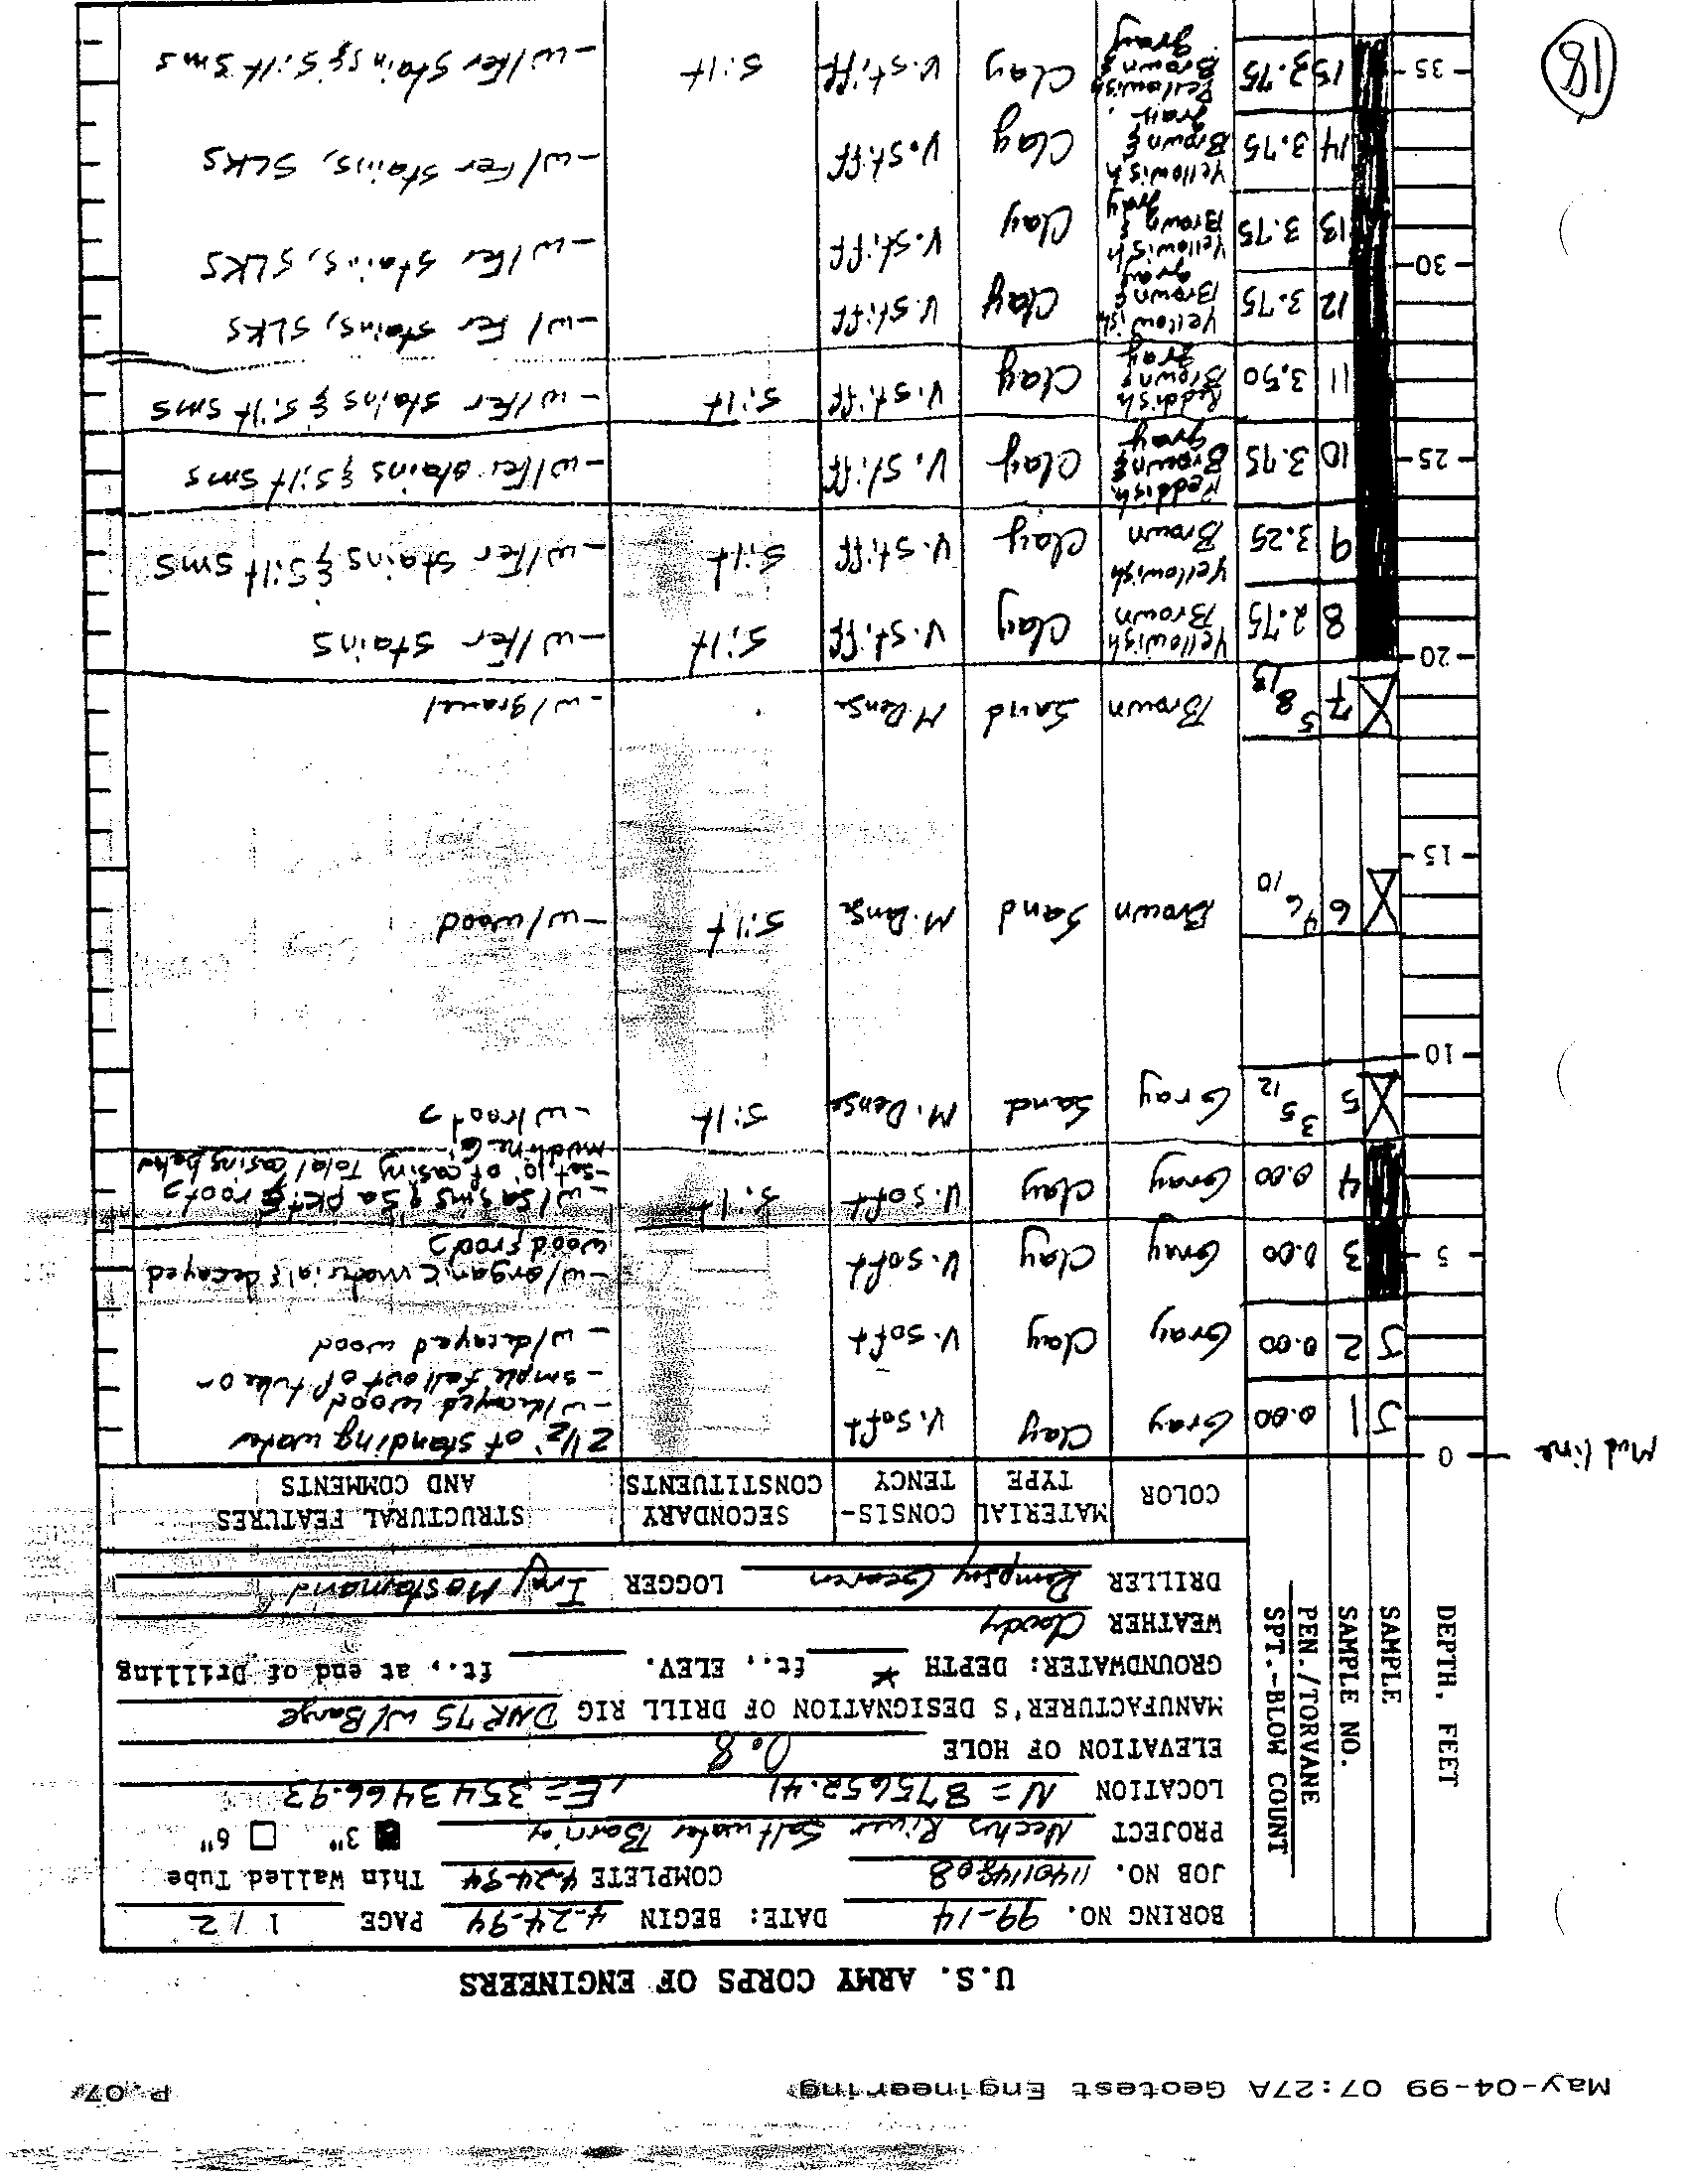 May-04-99 07:27A Geotest Engineering P.07
U.S. ARMY CORPS OF ENGINEERS
BORING NO. 99-14 DATE: BEGIN 4-24-94 PAGE 1 / 2
JOB NO. COMPLETE 4-24-94 Thin Walled Tube
PROJECT Neches River Saltwater Barrier 3" 6"
LOCATION N = 875652.41 , E = 3543466.93
ELEVATION OF HOLE 0.8
MANUFACTURER'S DESIGNATION OF DRILL RIG DNR 75 w/ Barge
GROUNDWATER: DEPTH * ft., ELEV. ft., at end of Drilling
WEATHER Cloudy
DRILLER LOGGER
DEPTH, FEET
SAMPLE
SAMPLE NO.
PEN./TORVANE
SPT.-BLOW COUNT
COLOR MATERIAL TYPE CONSISTENCY SECONDARY CONSTITUENTS STRUCTURAL FEATURES AND COMMENTS
Mud line 0
2 1/2' of standing water
J 1 0.00 Gray Clay V. Soft - w/decayed wood
- smple fall out of tube on
J 2 0.00 Gray Clay V. Soft - w/decayed wood
5 3 0.00 Gray Clay V. Soft - w/organic material & decayed
wood & roots
4 0.00 Gray Clay V. Soft Silt - w/sa sms & sa pkt & roots
- set 10' of casing Total casing below
mudline 6'
5 3 5 12 Gray Sand M. Dense Silt - w/roots
10
6 4 6 10 Brown Sand M. Dense Silt - w/wood
15
7 5 8 13 Brown Sand M. Dense - w/gravel
20
8 2.75 Yellowish Brown Clay V. Stiff Silt - w/fer stains
9 3.25 Yellowish Brown Clay V. Stiff Silt - w/fer stains & silt sms
25 10 3.75 Reddish Brown & gray Clay V. Stiff - w/fer stains & silt sms
11 3.50 Reddish Brown & gray Clay V. Stiff Silt - w/fer stains & silt sms
12 3.75 Yellowish Brown & gray Clay V. Stiff - w/ fer stains, SLKS
30
13 3.75 Yellowish Brown & gray Clay V. Stiff - w/ fer stains, SLKS
14 3.75 Yellowish Brown & gray Clay V. Stiff - w/ fer stains, SLKS
35 15 3.75 Yellowish Brown & gray Clay V. Stiff Silt - w/fer stains & silt sms
18